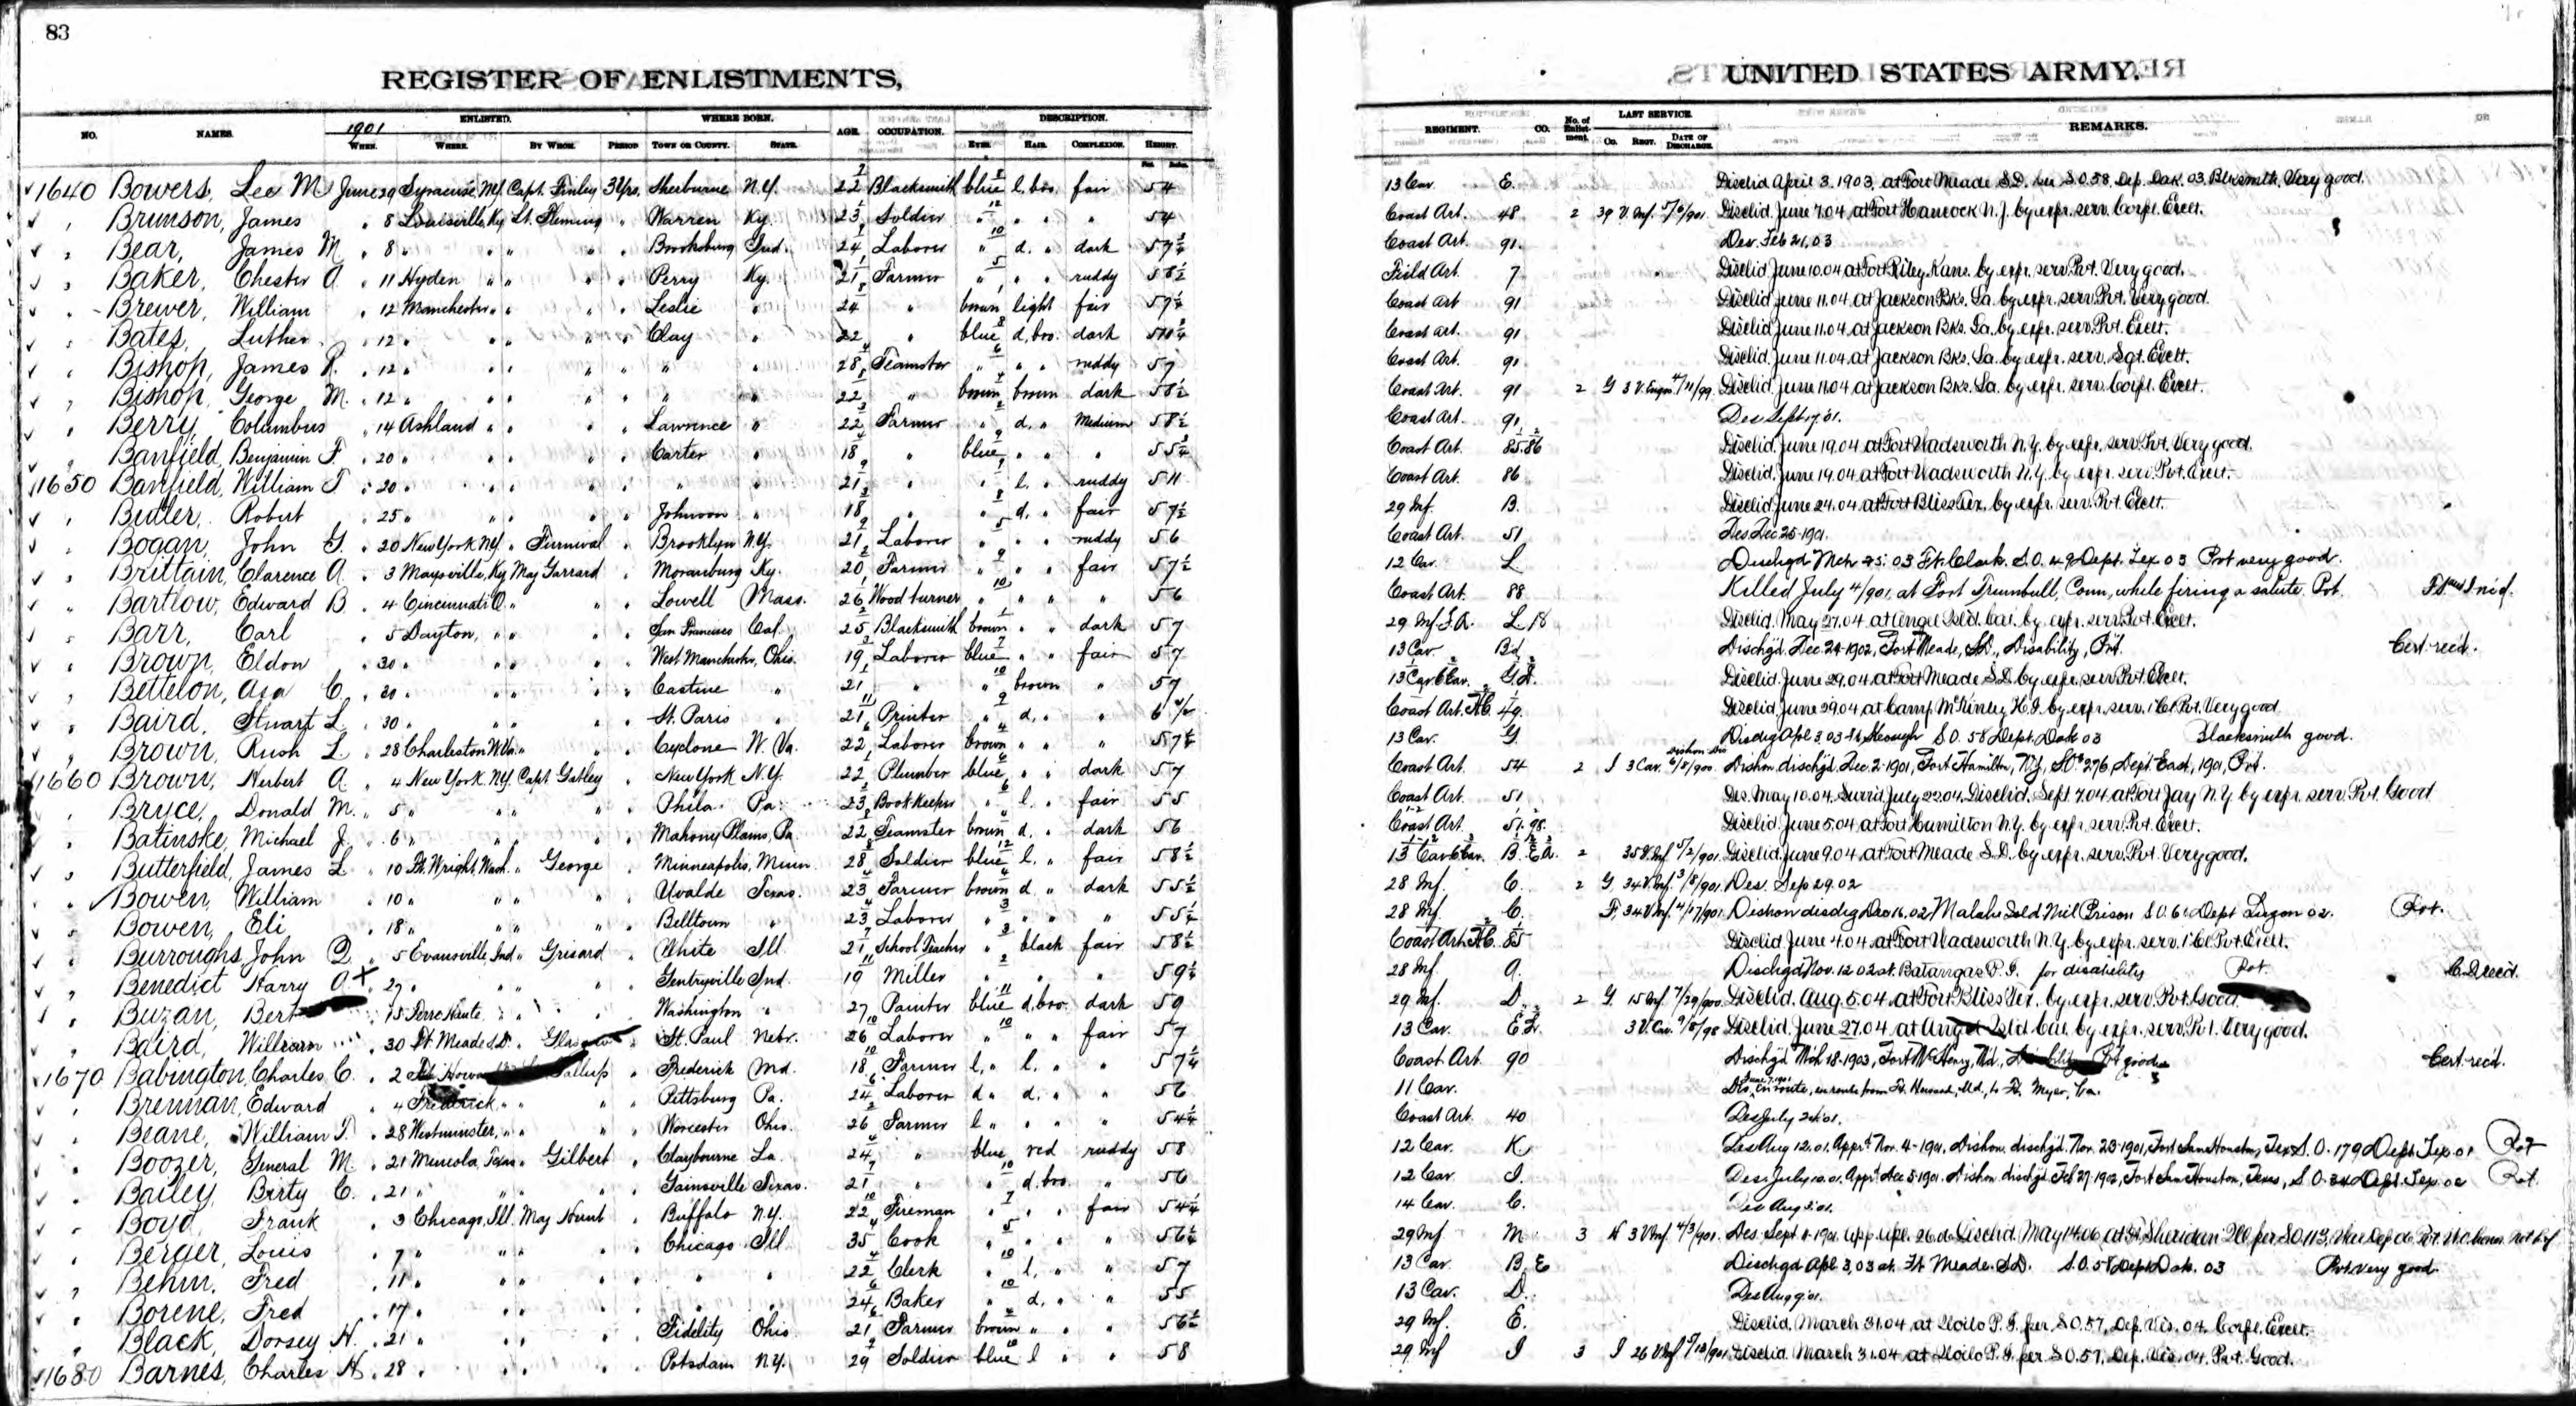 83
REGISTER OF ENLISTMENTS,
NO. NAMES. 1901 ENLISTED. WHEN. WHERE. BY WHOM. PERIOD WHERE BORN. TOWN OR COUNTY. STATE. AGE. OCCUPATION. DESCRIPTION. EYES. HAIR. COMPLEXION. HEIGHT.
1640 Bowers, Lee M June 29 Syracuse, NY. Capt. Finley 3 Yrs. Sherburne N.Y. 22 Blacksmith blue l. bro. fair 5 4
" Brunson, James " 8 Louisville, Ky Lt. Fleming " Warren Ky. 23 Soldier " " " " 5 4
" Bear, James M " 8 " " " " Brooksburg Ind. 24 Laborer " d. " dark 5 7 3/4
" Baker, Chester A " 11 Hyden " " " " Perry Ky. 21 Farmer " " " ruddy 5 8 1/2
" Brewer, William " 12 Manchester " " " " Leslie " 24 " brown light fair 5 7
" Bates, Luther " 12 " " " " " Clay " 22 " blue d. bro. dark 5 10
" Bishop, James R. " 12 " " " " " " " 28 Teamster " " " ruddy 5 7
" Bishop, George M. " 12 " " " " " " " 22 " brown brown dark 5 8 1/2
" Berry, Columbus " 14 Ashland " " " " Lawrence " 22 Farmer " d. " Medium 5 8 1/2
" Banfield, Benjamin F. " 20 " " " " " Carter " 18 " blue " " " 5 5
1650 Banfield, William T " 20 " " " " " " " 21 " " l. " ruddy 5 11
" Butler, Robert " 25 " " " " " Johnson " 18 " " d. " fair 5 7 1/2
" Bogan, John G. " 20 New York NY " Furnival " Brooklyn N.Y. 21 Laborer " " " ruddy 5 6
" Brittain, Clarence A " 3 Maysville, Ky Maj Garrard " Moransburg Ky. 20 Farmer " " " fair 5 7 1/2
" Bartlow, Edward B " 4 Cincinnati O. " " " Lowell Mass. 26 Wood turner " " " " 5 6
" Barr, Carl " 5 Dayton, " " " " San Francisco Cal. 25 Blacksmith brown " " dark 5 7
" Brown, Eldon " 30 " " " " " West Manchester, Ohio. 19 Laborer blue " " fair 5 7
" Bettelon, Asa C. " 30 " " " " " Castine " 21 " " brown " 5 7
" Baird, Stuart L. " 30 " " " " " St. Paris " 21 Printer " d. " " 6
" Brown, Rush L. " 28 Charleston W.Va. " " " Cyclone W. Va. 22 Laborer brown " " " 5 7
1660 Brown, Herbert A " 4 New York NY. Capt Gatley " New York N.Y. 22 Plumber blue " " dark 5 7
" Bryce, Donald M. " 5 " " " " " Phila. Pa. 23 Book Keeper " l. " fair 5 5
" Batinske, Michael J. " 6 " " " " " Mahony Plains, Pa 22 Teamster brown d. " dark 5 6
" Butterfield, James L " 10 Ft. Wright, Wash. " George " Minneapolis, Minn 28 Soldier blue l. " fair 5 8 1/2
" Bowen, William " 10 " " " " " Uvalde Texas. 23 Farmer brown d " dark 5 5 1/2
" Bowen, Eli " 18 " " " " " Belltown " 23 Laborer " " " " 5 5 1/2
" Burroughs, John Q " 5 Evansville, Ind " Grisard " White Ill. 21 School Teacher " black fair 5 8 1/2
" Benedict Harry A + " 27 " " " " " Gentryville Ind. 19 Miller " " " 5 9
" Buzan, Bert " 15 Terre Haute " " " " Washington " 27 Painter blue d. bro. dark 5 9
" Baird, William " 30 Ft. Meade S.D. " Glasgow " St. Paul Nebr. 26 Laborer " " " fair 5 7
1670 Babington, Charles C. " 2 Gallup " Frederick Md. 18 Farmer l. " l. " " 5 7
" Brennan, Edward " 4 Frederick " " " " Pittsburg Pa. 24 Laborer d " d. " " 5 6
" Beane, William T. " 28 Westminster, " " " " Worcester Ohio. 26 Farmer l " " " " 5 4
" Boozer, General M. " 21 Mineola, Texas " Gilbert " Claybourne La. 24 " blue red ruddy 5 8
" Bailey, Birty C. " 21 " " " " " Gainsville Texas. 21 " " d. bro. " 5 6
" Boyd, Frank " 3 Chicago, Ill. Maj Hunt " Buffalo N.Y. 22 Fireman " " " fair 5 4
" Berger, Louis " 7 " " " " " Chicago Ill. 35 Cook " " " " 5 6
" Behm, Fred " 11 " " " " " " " 22 Clerk " l. " " 5 7
" Borene, Fred " 17 " " " " " " " 24 Baker " d. " " 5 5
" Black, Dorsey H. " 21 " " " " " Fidelity Ohio 21 Farmer brown " " " 5 6 1/2
1680 Barnes, Charles N. " 28 " " " " " Potsdam N.Y. 29 Soldier blue l " " 5 8
UNITED STATES ARMY.
REGIMENT. CO. No. of Enlistment. LAST SERVICE. Co. REGT. DATE OF DISCHARGE. REMARKS.
13 Cav. E. Disclid April 3. 1903, at Fort Meade S.D. per S.O. 58, Dep. Dak. 03. Blksmith. Very good.
Coast Art. 48 2 39 V. Inf. 5/6/901 Disclid. June 7.04, at Fort Hancock N.J. by expr. serv. Corpl. Excet.
Coast Art. 91. Des. Feb 21, 03
Field Art. 7 Disclid June 10.04 at Fort Riley Kans. by expr. serv. Pvt. Very good.
Coast Art 91 Disclid June 11.04. at Jackson Bks. La. by expr. serv. Pvt. Very good.
Coast Art. 91 Disclid. June 11.04. at Jackson Bks. La. by expr. serv. Pvt. Excet.
Coast Art. 91 Disclid. June 11.04. at Jackson Bks. La. by expr. serv. Sgt. Excet.
Coast Art. 91 2 G 3 V. Engrs 4/11/99 Disclid. June 11.04 at Jackson Bks. La. by expr. serv. Corpl. Excet.
Coast Art. 91 Des Sept 17. 01.
Coast Art. 85.86 Disclid. June 19.04 at Fort Wadsworth N.Y. by expr. serv. Pvt. Very good.
Coast Art. 86 Disclid. June 19.04 at Fort Wadsworth N.Y. by expr. serv. Pvt. Excet.
29 Inf. B. Disclid June 24.04 at Fort Bliss Tex. by expr. serv. Pvt. Excet.
Coast Art. 51 Des Dec 25-1901.
12 Cav. L Dischgd Mch 25: 03 Ft. Clark. S.O. 49 Dept. Tex 03 Pvt very good.
Coast Art. 88 Killed July 4/901, at Fort Trumbull, Conn, while firing a salute. Pvt.
29 Inf. F.A. L. 18 Disclid. May 27.04. at Angel Isld. Cal. by expr. serv. Pvt. Excet.
13 Cav. Bd Dischgd. Dec. 24-1902, Fort Meade, S.D., Disability, Pvt. Cert. rec'd.
13 Cav. 6 Cav. Disclid. June 29.04. at Fort Meade S.D. by expr. serv. Pvt. Excet.
Coast Art. 49. Disclid. June 29.04 at Camp McKinley H.I. by expr. serv. 1 Cl Pvt. Very good.
13 Cav. G. Disdig Apl 3, 03 S.O. 58 Dept. Dak 03 Blacksmith good.
Coast Art. 54 2 I 3 Cav. 6/8/900 Dishon dischgd. Dec. 2-1901, Fort Hamilton, N.Y., S.O. 276, Dept. East, 1901, Pvt.
Coast Art. 51 Des. May 10.04. Surrd July 22.04. Disclid. Sept. 7.04 at Fort Jay N.Y. by expr. serv. Pvt. Good
Coast Art. 51. 98. Disclid June 5.04 at Fort Hamilton N.Y. by expr. serv. Pvt. Excet.
13 Cav. 6 Cav. B. E.A. 2 35 V. Inf 5/2/901 Disclid June 9.04. at Fort Meade S.D. by expr. serv. Pvt. Very good.
28 Inf. C. 2 G. 34 V. Inf. 3/8/901 Des. Sep 29.02
28 Inf. C. F. 34 V Inf. 4/17/901 Dishon disdig Dec 16. 02, Malahi Isld Mil Prison S.O. 61 Dept Luzon 02. Pvt.
Coast Art. 85 Disclid June 4.04. at Fort Wadsworth N.Y. by expr. serv. 1 Cl Pvt. Excet.
28 Inf. A. Dischgd Nov. 12 02 at. Batangas P.I. for disability Pvt. C.D. rec'd.
29 Inf. D. 2 G. 15 Inf. 7/29/900 Disclid. Aug. 5.04. at Fort Bliss Tex. by expr. serv. Pvt. Good.
13 Cav. 3 V. Cav. 9/8/98 Disclid. June 27.04. at Angel Isld Cal. by expr. serv. Pvt. Very good.
Coast Art. 90 Dischgd Mch 18-1903, Fort McHenry, Md., Disability Pvt good Cert. rec'd.
11 Cav. Des. June 7, 1901 en route, en route from Ft. Howard, Md., to Ft. Myer, Va.
Coast Art. 40 Des July 24. 01.
12 Cav. K Des Aug 12. 01. Appd. Nov. 4-1901. Dishon. dischgd. Nov. 23-1901, Fort Sam Houston, Tex S.O. 179 Dept. Tex. 01 Pvt
12 Cav I. Des July 10.01. Appd Dec 5-1901. Dishon. dischgd. Feb 27-1902, Fort Sam Houston, Texas, S.O. 34 Dept. Tex. 02 Pvt.
14 Cav. C. Des Aug 5. 01.
29 Inf M 3 K 3 V Inf 4/3/901. Des. Sept 8-1901. app. Apl. 26.06 Disclid. May 14.06, at Ft Sheridan Ill. per S.O. 113,
13 Cav. B, E Dischgd Apl. 3, 03 at. Ft Meade S.D. S.O. 58 Dept Dak. 03 Pvt very good.
13 Cav. D. Des Aug 9. 01.
29 Inf. E. Disclid. March 31.04. at Iloilo P.I. per S.O. 57, Dep. Vis. 04. Corpl. Excet.
29 Inf I 3 I 26 V Inf 5/13/901 Disclid. March 31.04 at Iloilo P.I. per S.O. 57, Dep. Vis. 04. Pvt. Good.